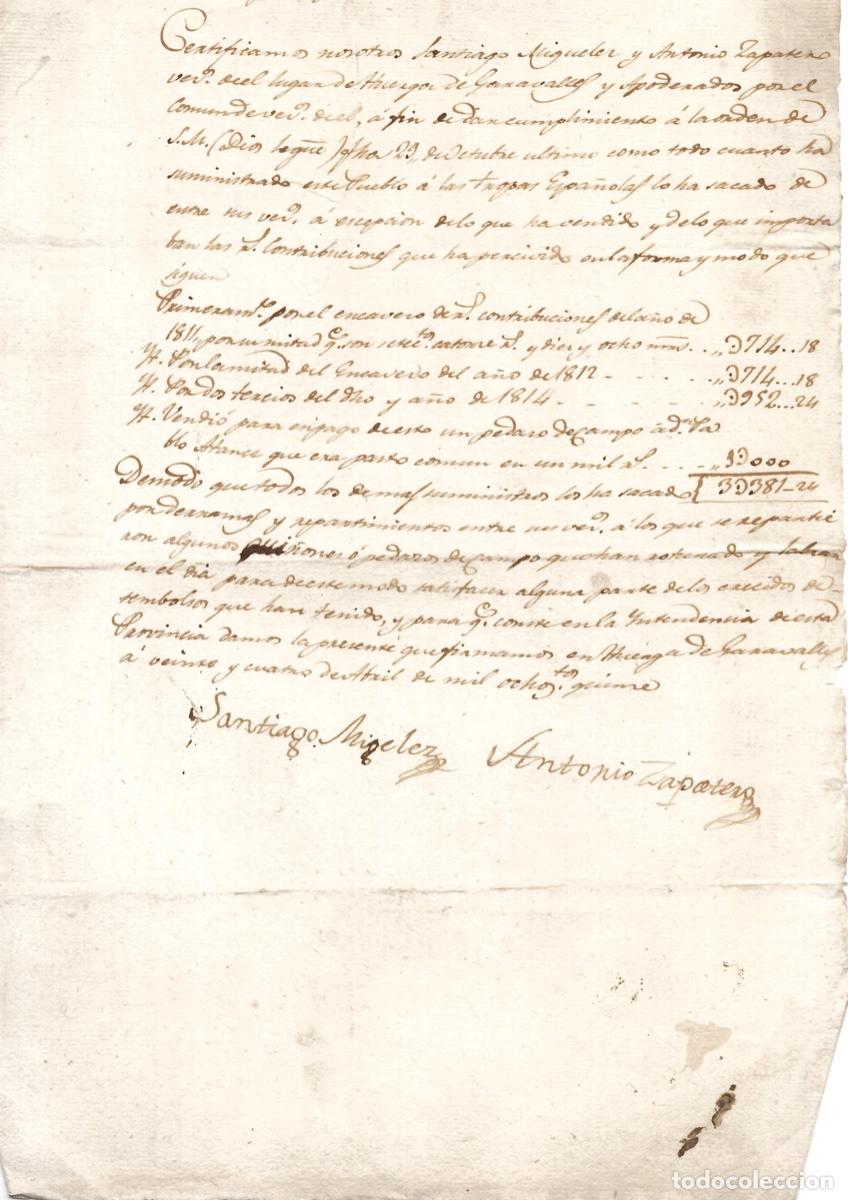 Certificamos nosotros Santiago Miguelez y Antonio Zapatero
vez.s de el lugar de Huerga de Garavalles y Apoderados por el
Comun de vez.s de el, á fin de dar cumplimiento á la orden de
S.M. (Dios le gue) fha 23, de Octubre ultimo como todo cuanto ha
suministrado este Pueblo á las tropas Españolas lo ha sacado de
entre sus vez.s á escepcion de lo que ha vendido y de lo que importa
ban las r.s Contribuciones que ha percivido en la forma y modo que
siguen
Primeram.te por el encavezo de r.s contribuciones del año de
1811, por su mitad q.e son setec.tos catorce r.s y diez y ocho mrs. . ,,D714..18
Yt. Por la mitad del Encavezo del año de 1812 - . . . . ,,D714...18
Yt. Por dos tercios del dho y año de 1814 - - - - - ,,D952...24
Yt. Vendió para en pago de esto un pedazo de campo a d.n Pa
blo Atance que era pasto comun en un mil r.s . . - ,,1D000
De modo que todos los demas suministros los ha sacado 3D381-24
por derramas y repartimientos entre sus vez.s á los que se repartie
ron algunos quiñones ó pedazos de campo que han roturado y labran
en el dia para de este modo satisfacer alguna parte de los crecidos de-
sembolsos que han tenido, y para q.e conste en la Yntendencia de esta
Provincia damos la presente que firmamos en Huerga de Garavalles
á veinte y cuatro de Abril de mil ochoz.tos quince
Santiago Migelez Antonio Zapatero
todocoleccion